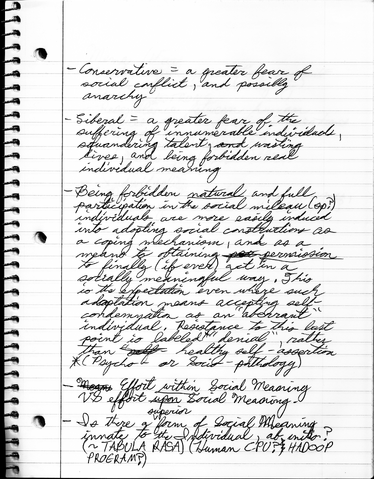 - Conservative = a greater fear of
social conflict, and possibly
anarchy
- Liberal = a greater fear of the
suffering of innumerable individuals,
squandering talent, and wasting
lives, and being forbidden real
individual meaning
- Being forbidden natural and full
participation in the social milieau (sp?)
individuals are more easily induced
into adopting social constructions as
a coping mechanism, and as a
means to obtaining permission
to finally (if ever) act in a
socially meaningful way. This
is the expectation even where such
adaptation means accepting self-
condemnation as an "aberrant"
individual. Resistance to this last
point is labeled "denial", rather
than healthy self-assertion
*(Psycho- or Socio-pathology)
- Effort within Social Meaning
VS effort upon Social Meaning.
superior
- Is there a form of Social Meaning
innate to the Individual, ab initio?
(~ TABULA RASA) (Human CPU? & HADOOP
PROGRAM?)